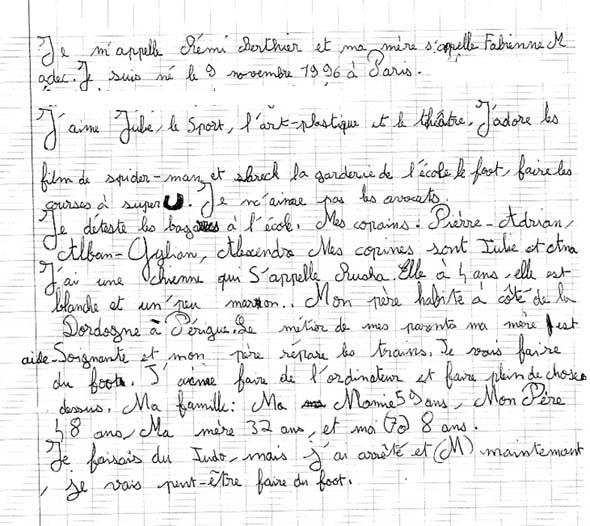 Je m'appelle Rémi Berthier et ma mère s'appelle Fabienne M
adec. Je suis né le 9 novembre 1996 à Paris.
J'aime Julie, le Sport, l'art-plastique et le théâtre. J'adore les
film de spider-man et shreck la garderie de l'école le foot, faire les
courses à super U. Je n'aime pas les avocats.
Je déteste les bagares à l'école. Mes copains : Pierre-Adrian,
Alban-Gylian, Alexendre Mes copines sont Julie et Ana
J'ai une chienne qui S'appelle Rusha. Elle à 4 ans elle est
blanche et un peu marron.. Mon père habite à côté de la
Dordogne à Périgue. Le métier de mes parents ma mère est
aide-Soignante et mon père répare les trains. Je vais faire
du foot. J'aime faire de l'ordinateur et faire plein de choses
dessus. Ma famille : Ma Mamie 59 ans, Mon Père
48 ans, Ma mère 32 ans, et moi (7a) 8 ans.
Je faisais du Judo, mais j'ai arrêté et (M) maintenant
, je vais peut-être faire du foot.